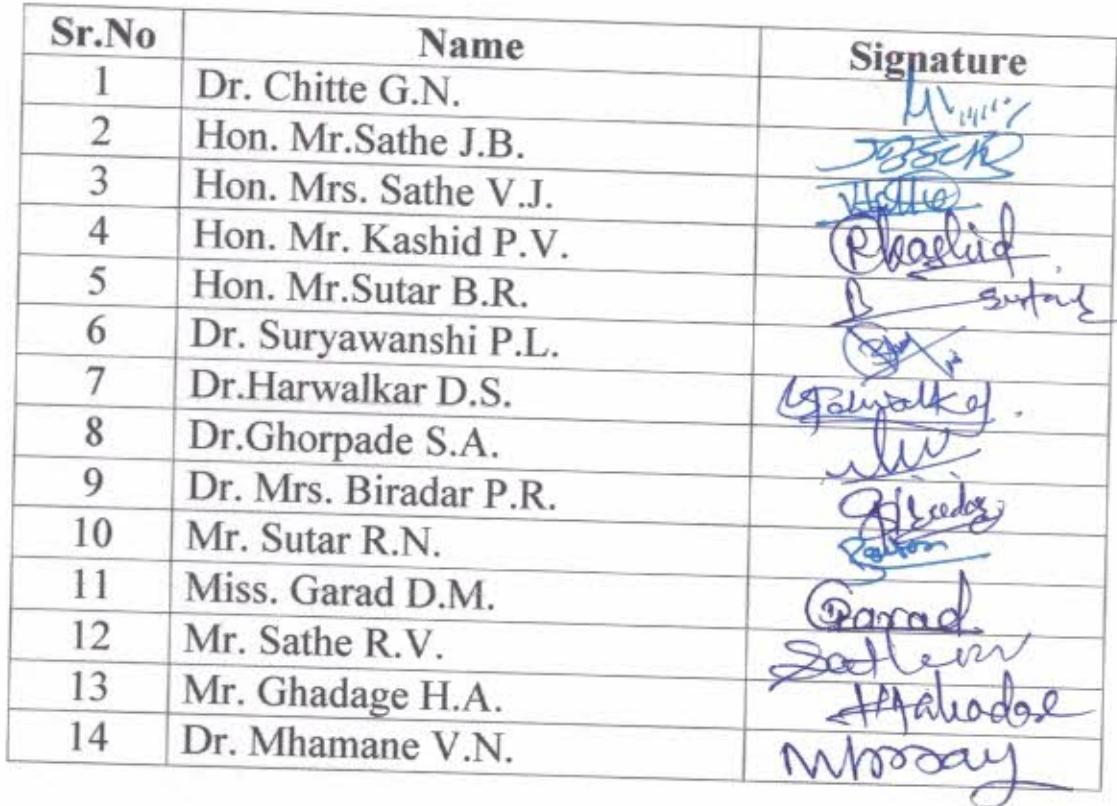 Sr.No Name Signature
1 Dr. Chitte G.N.
2 Hon. Mr.Sathe J.B.
3 Hon. Mrs. Sathe V.J.
4 Hon. Mr. Kashid P.V. Pkashid
5 Hon. Mr.Sutar B.R. B Sutar
6 Dr. Suryawanshi P.L.
7 Dr.Harwalkar D.S.
8 Dr.Ghorpade S.A.
9 Dr. Mrs. Biradar P.R.
10 Mr. Sutar R.N.
11 Miss. Garad D.M. Garad
12 Mr. Sathe R.V.
13 Mr. Ghadage H.A.
14 Dr. Mhamane V.N.